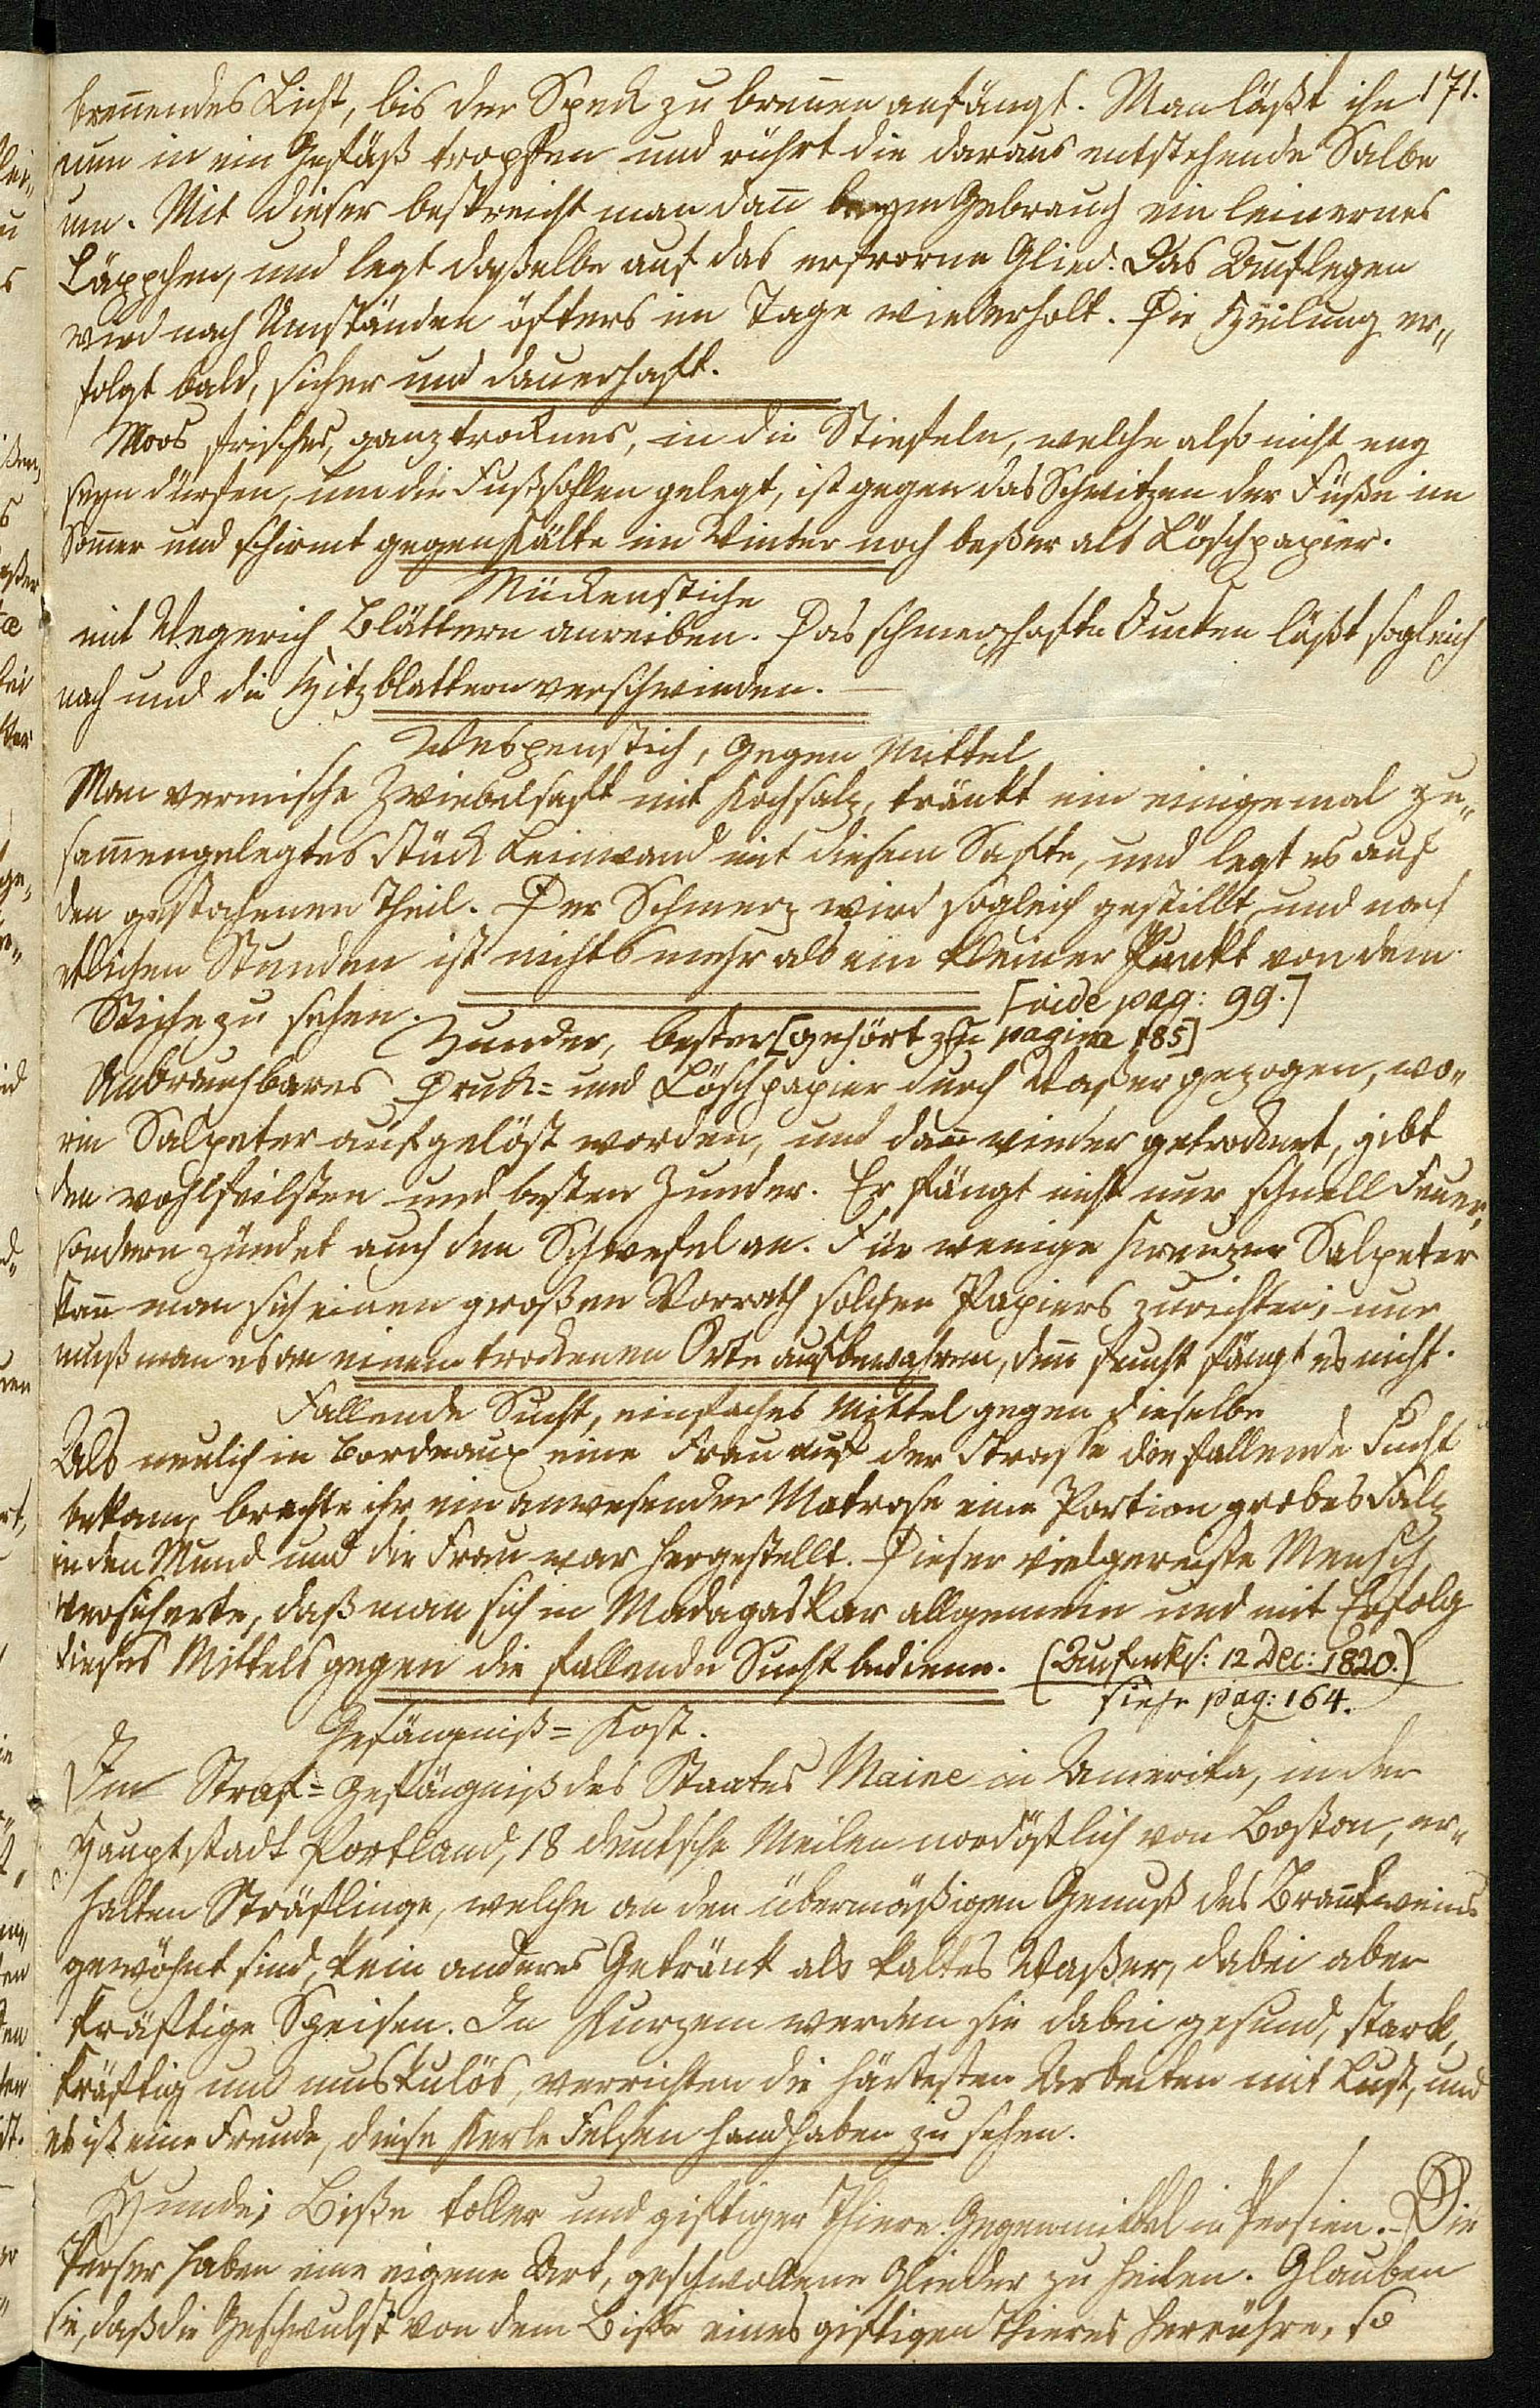 171.
brennendes Licht, bis der Speck zu brennen anfängt. Man läßt ihn
nun in ein Gefäß tropfen und rührt die daraus entstehende Salbe
um. Mit dieser bestreicht man dañ beym Gebrauch ein leinernes
Läppchen, und legt daßelbe auf das erfrorne Glied. Das Auflegen
wird nach Umständen öfters im Tage wiederholt. Die Heilung er„
folgt bald, sicher und dauerhaft.
Moos frisches, ganz trocknes, in die Stiefeln, welche also nicht eng
seyn dürfen, um die Fußsohlen gelegt, ist gegen das Schwitzen der Füße im
Som̃er und schirmt gegen Kälte im Winter noch beßer als Löschpapier.
Mückenstiche
mit Wegerich Blättern anreiben. Das schmerzhafte Jucken läßt sogleich
nach und die Hitzblattern verschwinden. —
Wespenstich, Gegen Mittel
Man vermische Zwiebelsaft mit Kochsalz, tränkt ein einigemal zu„
sam̃engelegtes Stück Leinwand mit diesem Safte, und legt es auf
den gestochenen Theil. Der Schmerz wird sogleich gestillt, und nach
etlichen Stunden ist nichts mehr als ein kleiner Punkt von dem
Stiche zu sehen. [vide pag: 99.]
Zunder, bester [gehört zu pagina 185]
Unbrauchbares Druck= und Löschpapier durch Waßer gezogen, wo„
rin Salpeter aufgelöst worden, und dañ wieder getrocknet, gibt
den wohlfeilsten und besten Zunder. Er fängt nicht nur schnell Feuer,
sondern zündet auch den Schwefel an. Für wenige Kreuzer Salpeter
kañ man sich einen großen Vorrath solchen Papiers zurichten; nur
muß man es an einem trockenen Orte aufbewahren, deñ feucht fängt es nicht.
Fallende Sucht, einfaches Mittel gegen dieselbe
Als neulich in Bordeaux eine Frau auf der Strasse die fallende Sucht
bekam, brachte ihr ein anwesender Matrose eine Portion grobes Salz
in den Mund und die Frau war hergestellt. Dieser vielgereiste Mensch
versicherte, daß man sich in Madagaskar allgemein und mit Erfolg
dieses Mittels gegen die fallende Sucht bediene. (Aufmks: 12 Dec: 1820.)
siehe pag: 164.
Gefängniß= Kost.
Im Straf= Gefängniß des Staates Maine in Amerika, in der
Hauptstadt Portland, 18 deutsche Meilen nordöstlich von Boston, er„
halten Sträflinge, welche an den übermäßigen Genuß des Brañtweins
gewöhnt sind, kein anderes Getränk als kaltes Waßer, dabei aber
kräftige Speisen. In Kurzem werden sie dabei gesund, stark,
kräftig und muskulös, verrichten die härtesten Arbeiten mit Lust, und
es ist eine Freude, diese Kerle Felsen handhaben zu sehen.
Hunde; Biße toller und giftiger Thiere. Gegenmittel in Persien. Die
Perser haben eine eigene Art, geschwollene Glieder zu heilen. Glauben
sie, daß die Geschwulst von dem Biße eines giftigen Thieres herrühre, so